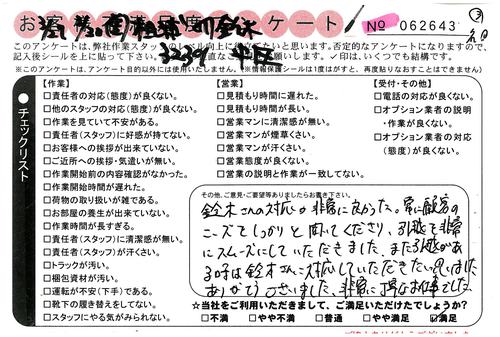 お客様満足度アンケート
No 062643
このアンケートは、弊社作業スタッフのレベル向上に役立てたいと思います。否定的なアンケートになりますので、
記入後シールを上に貼って下さい。
✓印は、いくつでも結構です。
※このアンケートは、アンケート目的以外には使用いたしません。※情報保護シールは1度はがすと、再度貼りなおすことはできません。
チェックリスト
【作業】
□責任者の対応(態度)が良くない。
□他のスタッフの対応(態度)が良くない。
□作業を見ていて不安がある。
□責任者(スタッフ)に好感が持てない。
□お客様への挨拶が出来ていない。
□ご近所への挨拶・気遣いが無い。
□作業開始前の内容確認がなかった。
□作業開始時間が遅れた。
□荷物の取り扱いが雑である。
□お部屋の養生が出来ていない。
□作業時間が長すぎる。
□責任者(スタッフ)に清潔感が無い。
□責任者(スタッフ)が汗くさい。
□トラックが汚い。
□梱包資材が汚い。
□運転が不安(下手)である。
□靴下の履き替えをしてない。
□スタッフにやる気がみられない。
【営業】
□見積もり時間に遅れた。
□見積もり時間が長い。
□営業マンに清潔感が無い。
□営業マンが煙草くさい。
□営業マンが汗くさい。
□営業態度が良くない。
□営業の説明と作業が一致してない。
【受付・その他】
□電話の対応が良くない。
□オプション業者の説明
・作業が良くない。
□オプション業者の対応
(態度)が良くない。
その他、ご意見・ご要望等ありましたらお書き下さい。
鈴木さんの対応が非常に良かった。常に顧客の
ニーズをしっかりと聞いてくださり、引越を非常
にスムーズにしていただきました。また引越があ
る時は鈴木さんに対応していただきたいと思いました。
ありがとうございました。非常に丁寧なお仕事でした。
☆当社をご利用いただきまして、ご満足いただけたでしょうか?
□不満 □やや不満 □普通 □やや満足 ☑満足